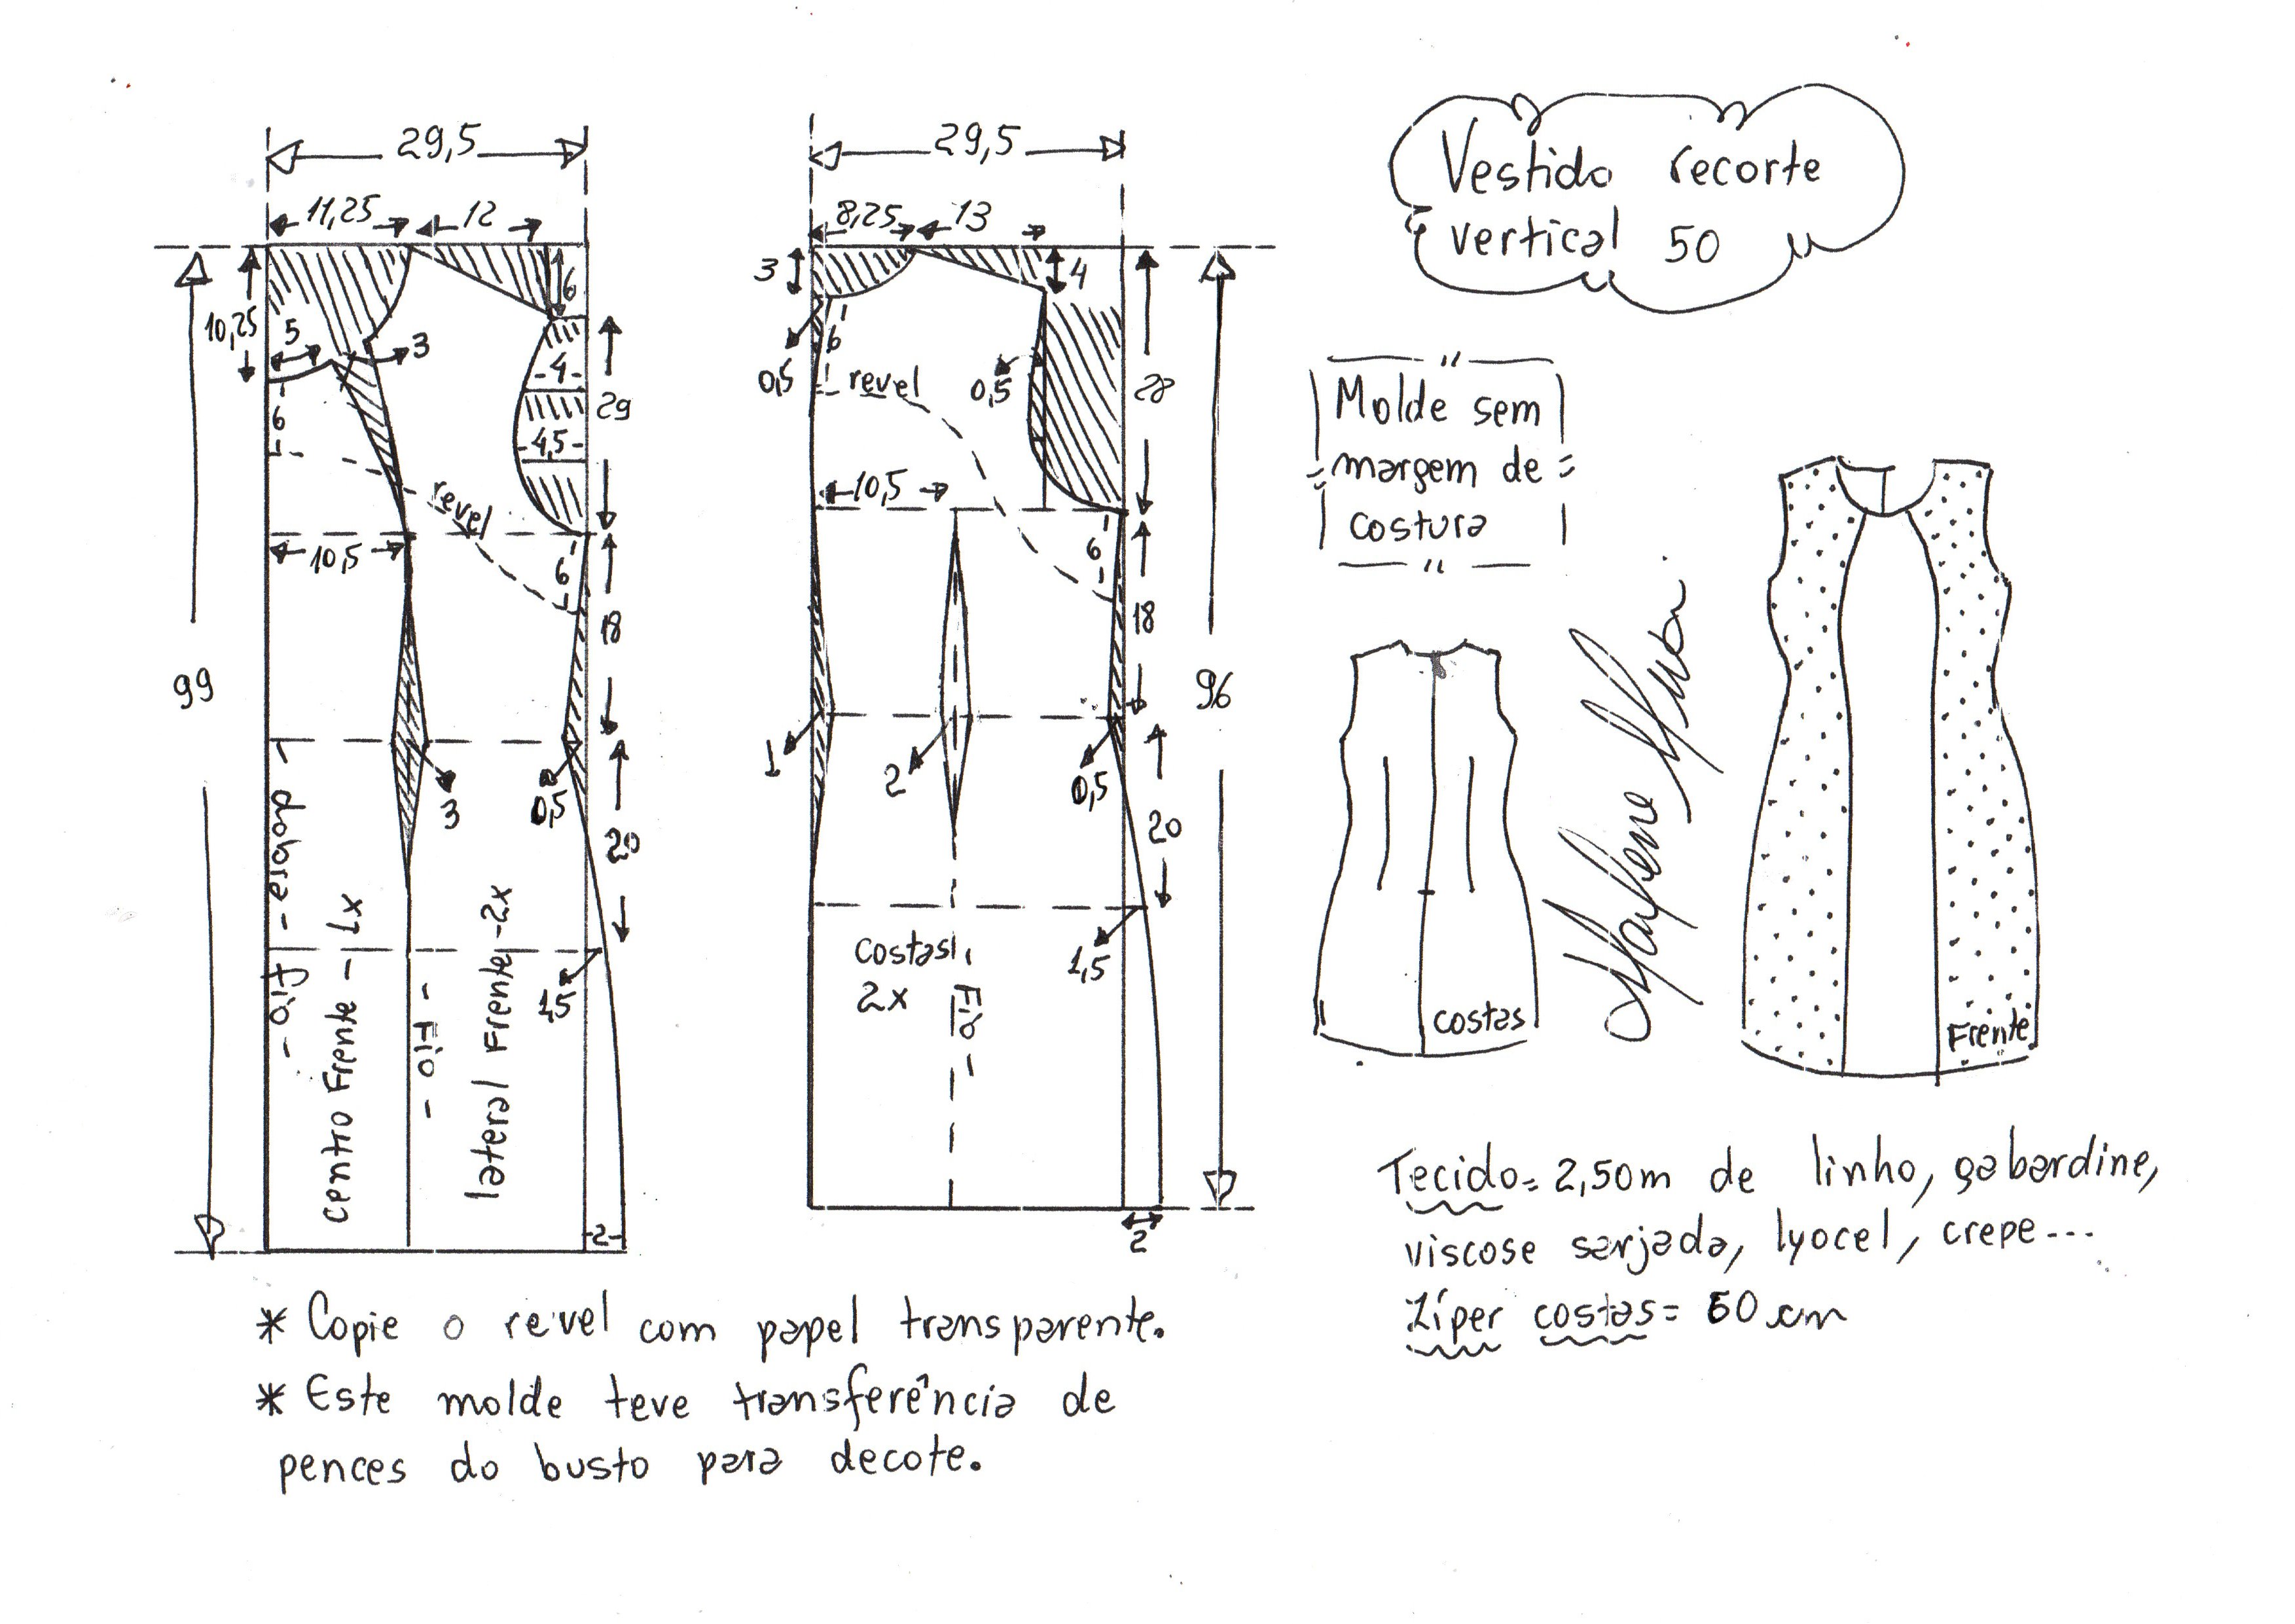 29,5
11,25
12
6
10,25
5
3
6
4
4,5
29
revel
10,5
6
18
99
3
0,5
20
- dobra - Fio -
centro Frente - 1x
- Fio -
lateral Frente - 2x
1,5
-2-
29,5
8,25
13
3
4
0,5
6
revel
0,5
28
10,5
6
18
96
1
2
0,5
20
1,5
costas
2x
Fio -
2
Vestido recorte
vertical 50
Molde sem
margem de
costura
costas
Frente
Tecido= 2,50m de linho, gabardine,
viscose sarjada, lyocel, crepe...
Zíper costas= 60 cm
* Copie o revel com papel transparente.
* Este molde teve transferência de
pences do busto para decote.